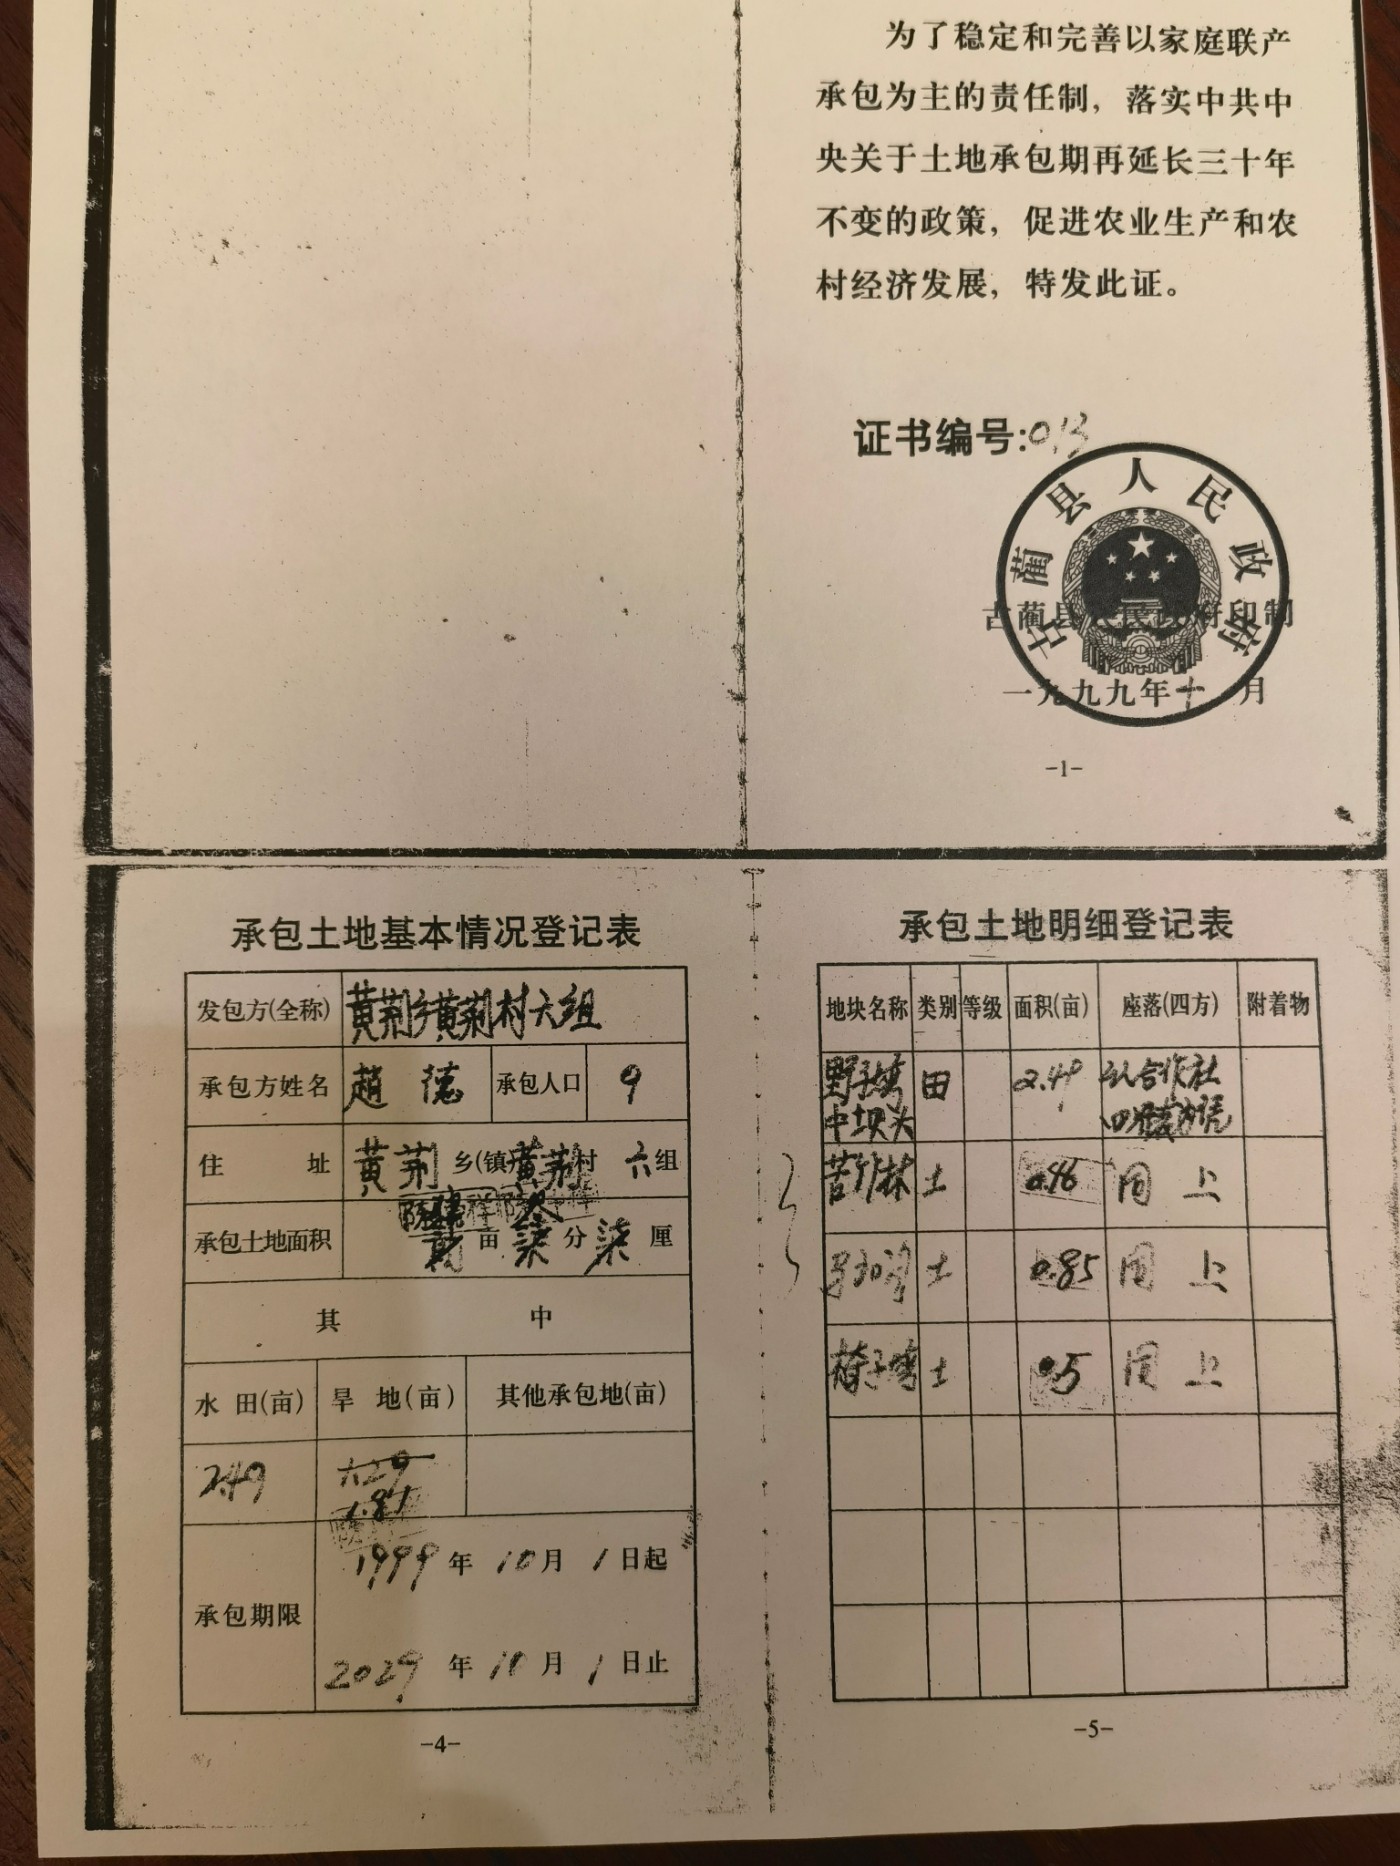 为了稳定和完善以家庭联产
承包为主的责任制，落实中共中
央关于土地承包期再延长三十年
不变的政策，促进农业生产和农
村经济发展，特发此证。
证书编号:013
古蔺县人民政府
古蔺县人民政府印制
一九九九年十月
-1-
承包土地基本情况登记表
发包方(全称) 黄荆乡黄荆村六组
承包方姓名 趙德 承包人口 9
住址 黄荆 乡(镇) 黄荆 村 六组
承包土地面积 亩 柒 分 柒 厘
其中
水田(亩) 旱地(亩) 其他承包地(亩)
2.49 1.29
1.81
承包期限 1999年10月1日起
2029年10月1日止
-4-
承包土地明细登记表
地块名称 类别 等级 面积(亩) 座落(四方) 附着物
田 2.49 以合作社
中坝头
苦竹林 土 0.46 同上
土 0.85 同上
土 0.5 同上
-5-